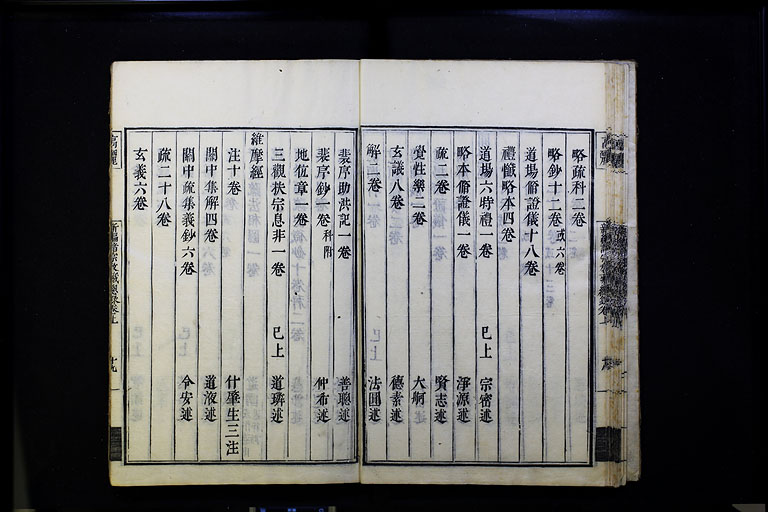 略疏科二卷
略鈔十二卷 或六卷
道場脩證儀十八卷
禮懺略本四卷
道場六時禮一卷 已上 宗密述
略本脩證儀一卷 淨源述
疏二卷 賢志述
覺性樂二卷 大嗣述
玄議八卷 德素述
解二卷 法圓述
裴序助洪記一卷 善聰述
裴序鈔一卷 科附 仲希述
地位章一卷
三觀扶宗息非一卷 已上 道璘述
維摩經
注十卷 什肇生三注
關中集解四卷 道液述
關中疏集義鈔六卷 令安述
疏二十八卷
玄義六卷